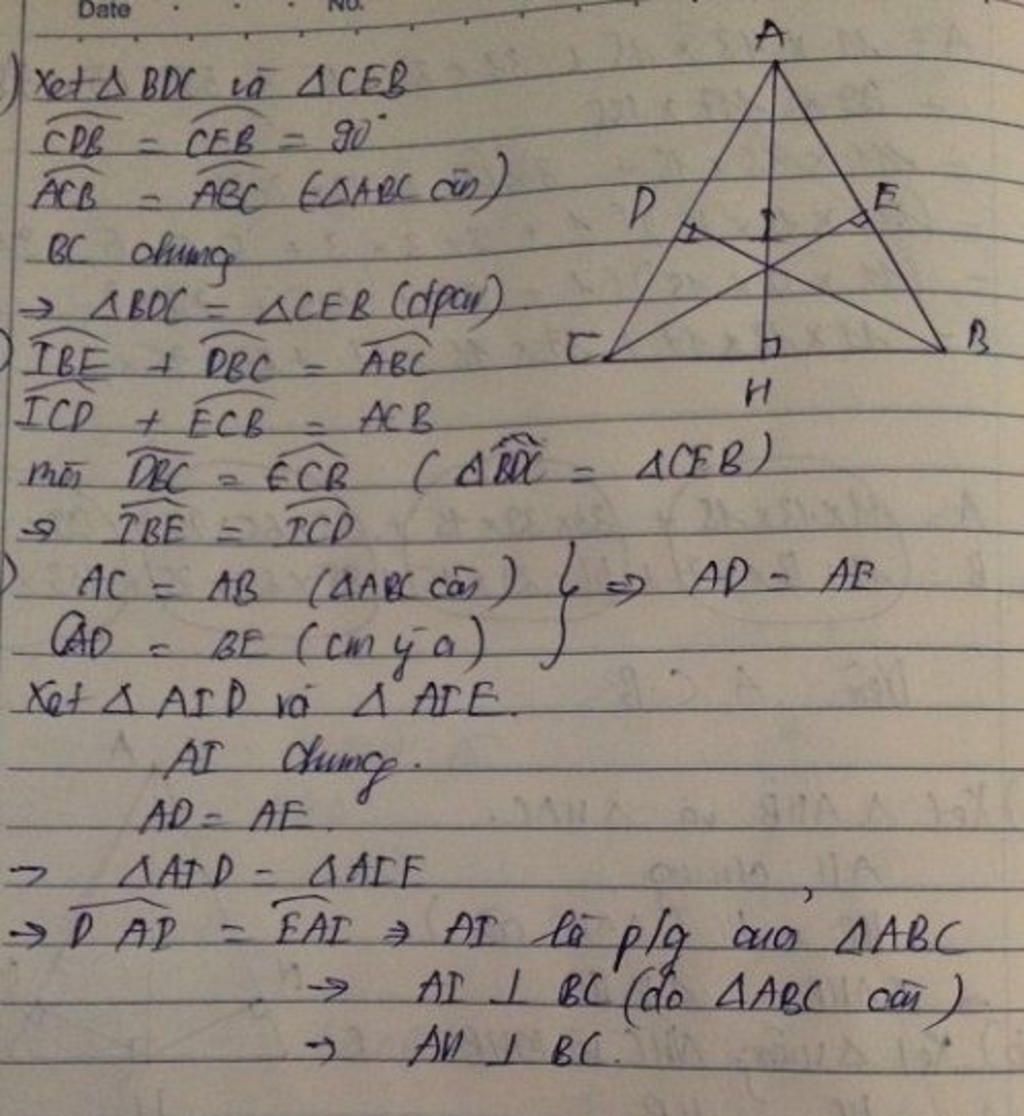 Date No.
) Xét Δ BDC và Δ CEB
CDB = CEB = 90°
ACB = ABC (ΔABC cân)
BC chung
→ ΔBDC = ΔCEB (đpcm)
) IBE + DBC = ABC
ICD + ECB = ACB
mà DBC = ECB (ΔBDC = ΔCEB)
⇒ IBE = ICD
) AC = AB (ΔABC cân) } ⇒ AD = AE
CAD = BE (cm ý a)
Xét Δ AID và Δ AIE.
AI chung.
AD = AE.
→ ΔAID = ΔAIE
→ DAI = EAI ⇒ AI là p/g của ΔABC
→ AI ⊥ BC (do ΔABC cân)
→ AH ⊥ BC.
A
D
E
I
C
B
H